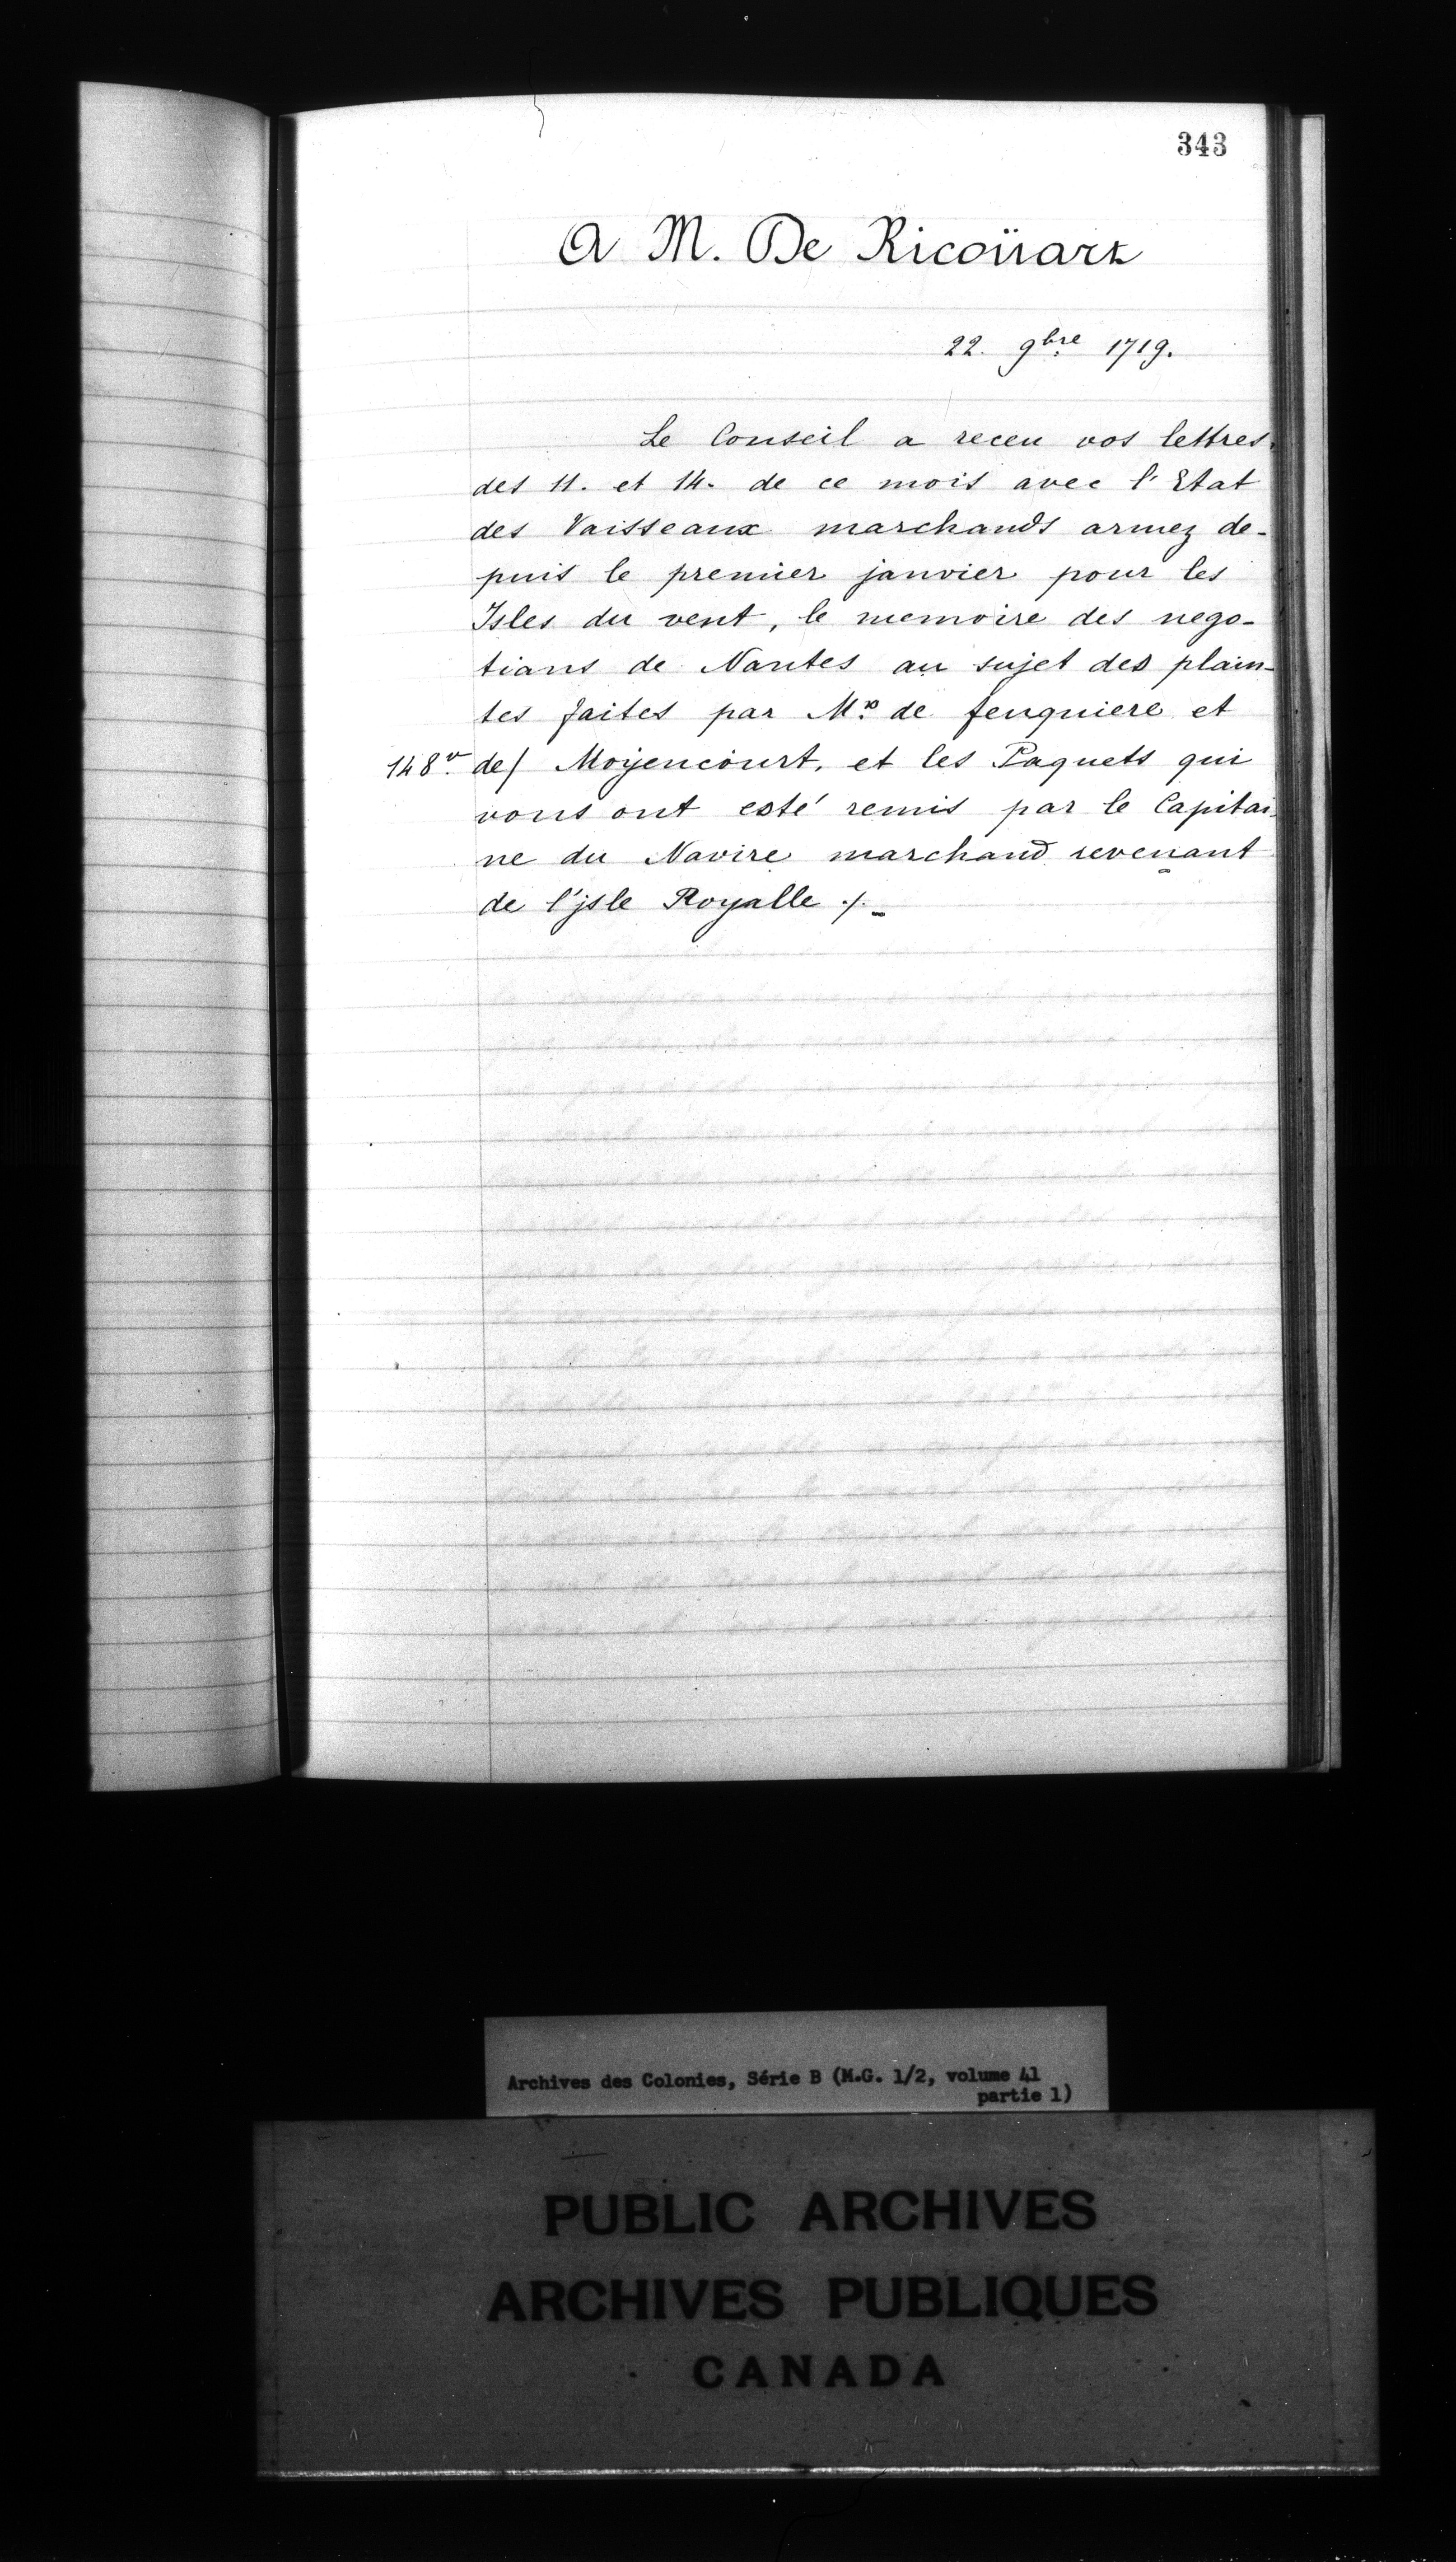 343
A M. De Ricoüart
22. 9bre 1719.
Le Conseil a receu vos lettres
des 11. et 14. de ce mois avec l'Etat
des Vaisseaux marchands armez de-
puis le premier janvier pour les
Isles du vent, le memoire des nego-
tians de Nantes au sujet des plain-
tes faites par Mrs de feuquiere et
148v. de/ Moyencourt, et les Paquets qui
vous ont esté remis par le Capitai-
ne du Navire marchand revenant
de l'jsle Royalle ./.
Archives des Colonies, Série B (M.G. 1/2, volume 41
partie 1)
PUBLIC ARCHIVES
ARCHIVES PUBLIQUES
CANADA